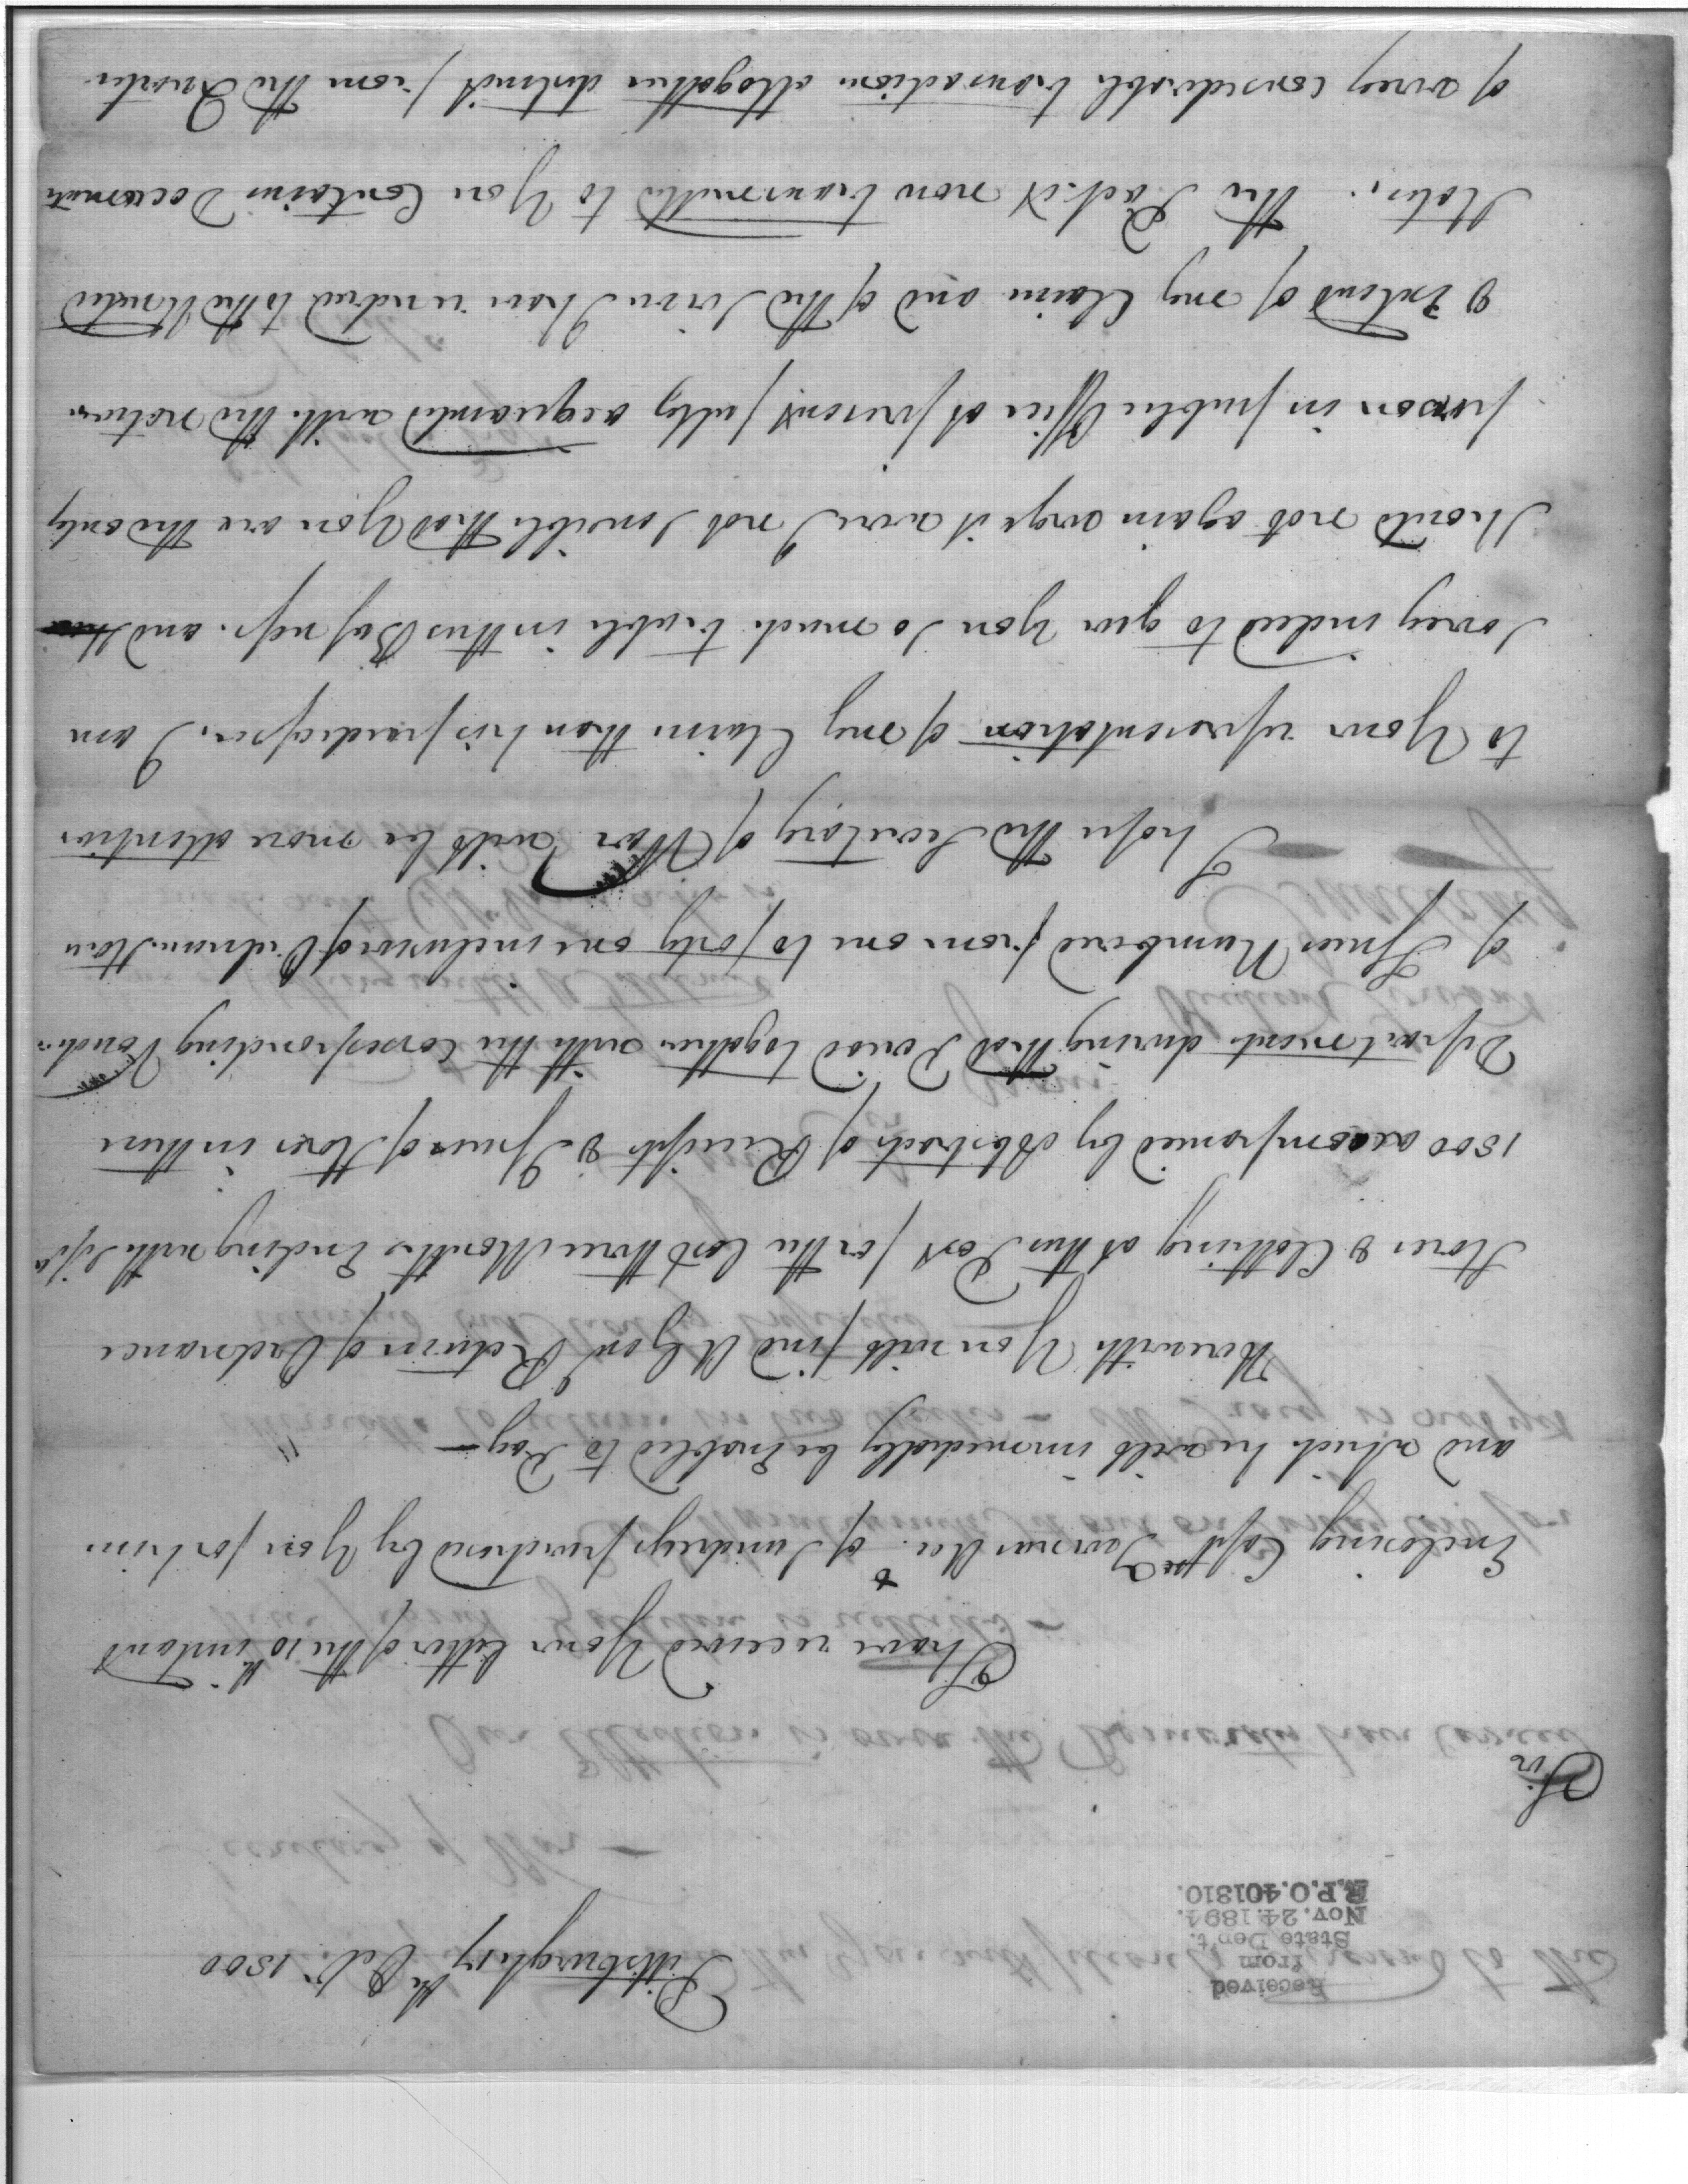 Received
from
State Dep't.
Nov. 24. 1894.
R.P.O. 401310.
Pittsburgh 17th Octr. 1800
Sir
I have received Your letter of the 10th instant
Enclosing Capt Acct. of Sundrys purchased by You for him
and which he will immediately be Enabled to Pay —
Herewith You will find A Gen'l Return of Ordnance
Stores & Clothing at this Post for the last three Months Ending with Sepr
1800 accompanied by Abstracts of Receipts & Issues of Stores in there
Department during that Period together with the Corresponding Vouchers
of Issues Numbered from one to forty one inclusive of Ordnance Stores
I hope the Secretary of War will be more attentive
to Your representation of my Claim than his predicessor. I am
Sorry indeed to give You So much truble in this Business. and
Should not again urge it were I not Sencible that You are the only
person in public Office at present fully acquainted with the nature
& Extent of my Claim and of the Services I have rendred to the United
States. The Packet now transmitted to You Contains Documents
of very Considerable transactions altogether distinct from the Quarter